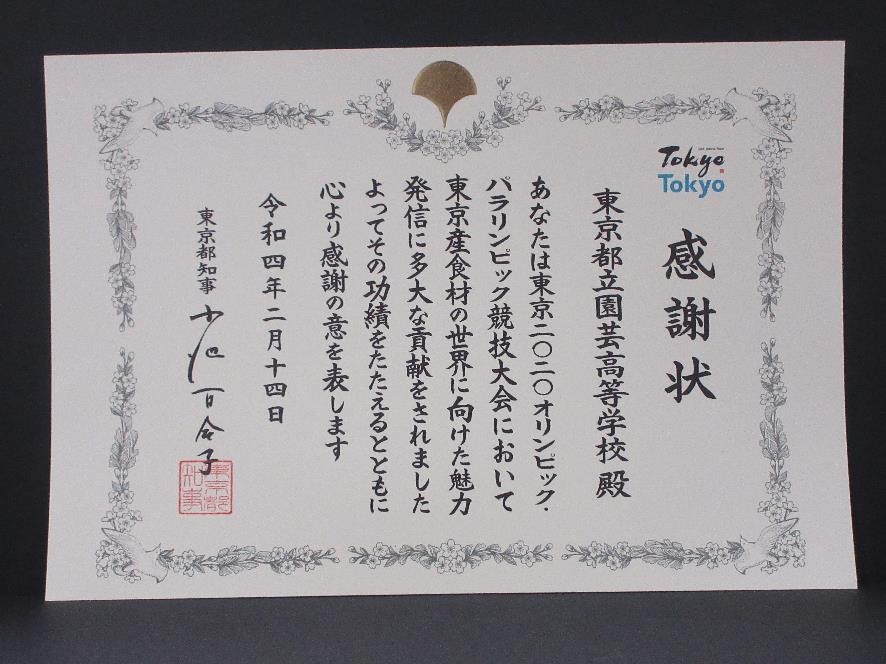 Tokyo
Tokyo
感謝状
東京都立園芸高等学校 殿
あなたは東京二〇二〇オリンピック・
パラリンピック競技大会において
東京産食材の世界に向けた魅力
発信に多大な貢献をされました
よってその功績をたたえるとともに
心より感謝の意を表します
令和四年二月十四日
東京都知事 小池百合子
東京都
知事